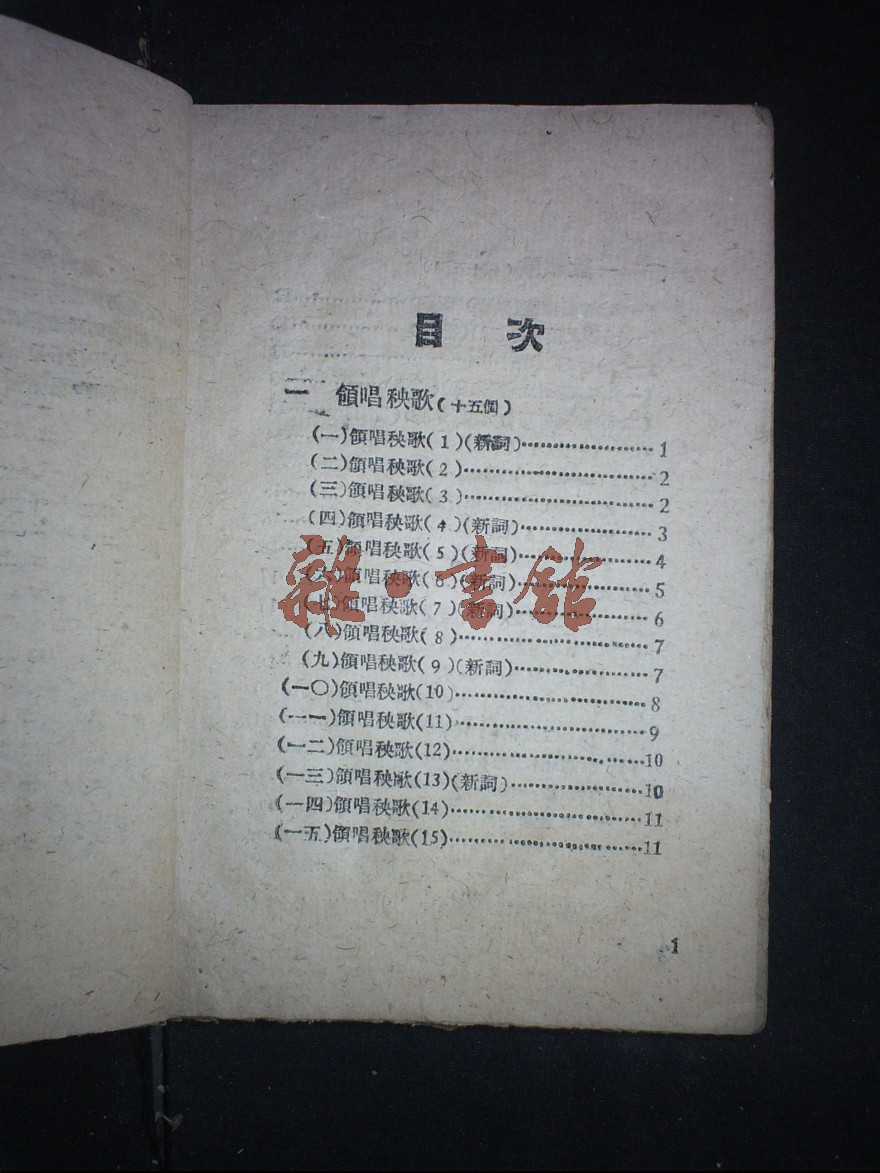 目 次
一 領唱秧歌(十五個)
(一)領唱秧歌(1)(新詞)…………………1
(二)領唱秧歌(2)…………………………2
(三)領唱秧歌(3)…………………………2
(四)領唱秧歌(4)(新詞)…………………3
(五)領唱秧歌(5)(新詞)…………………4
(六)領唱秧歌(6)(新詞)…………………5
(七)領唱秧歌(7)(新詞)…………………6
(八)領唱秧歌(8)…………………………7
(九)領唱秧歌(9)(新詞)…………………7
(一〇)領唱秧歌(10)………………………8
(一一)領唱秧歌(11)………………………9
(一二)領唱秧歌(12)………………………10
(一三)領唱秧歌(13)(新詞)………………10
(一四)領唱秧歌(14)………………………11
(一五)領唱秧歌(15)………………………11
1
雜·書館